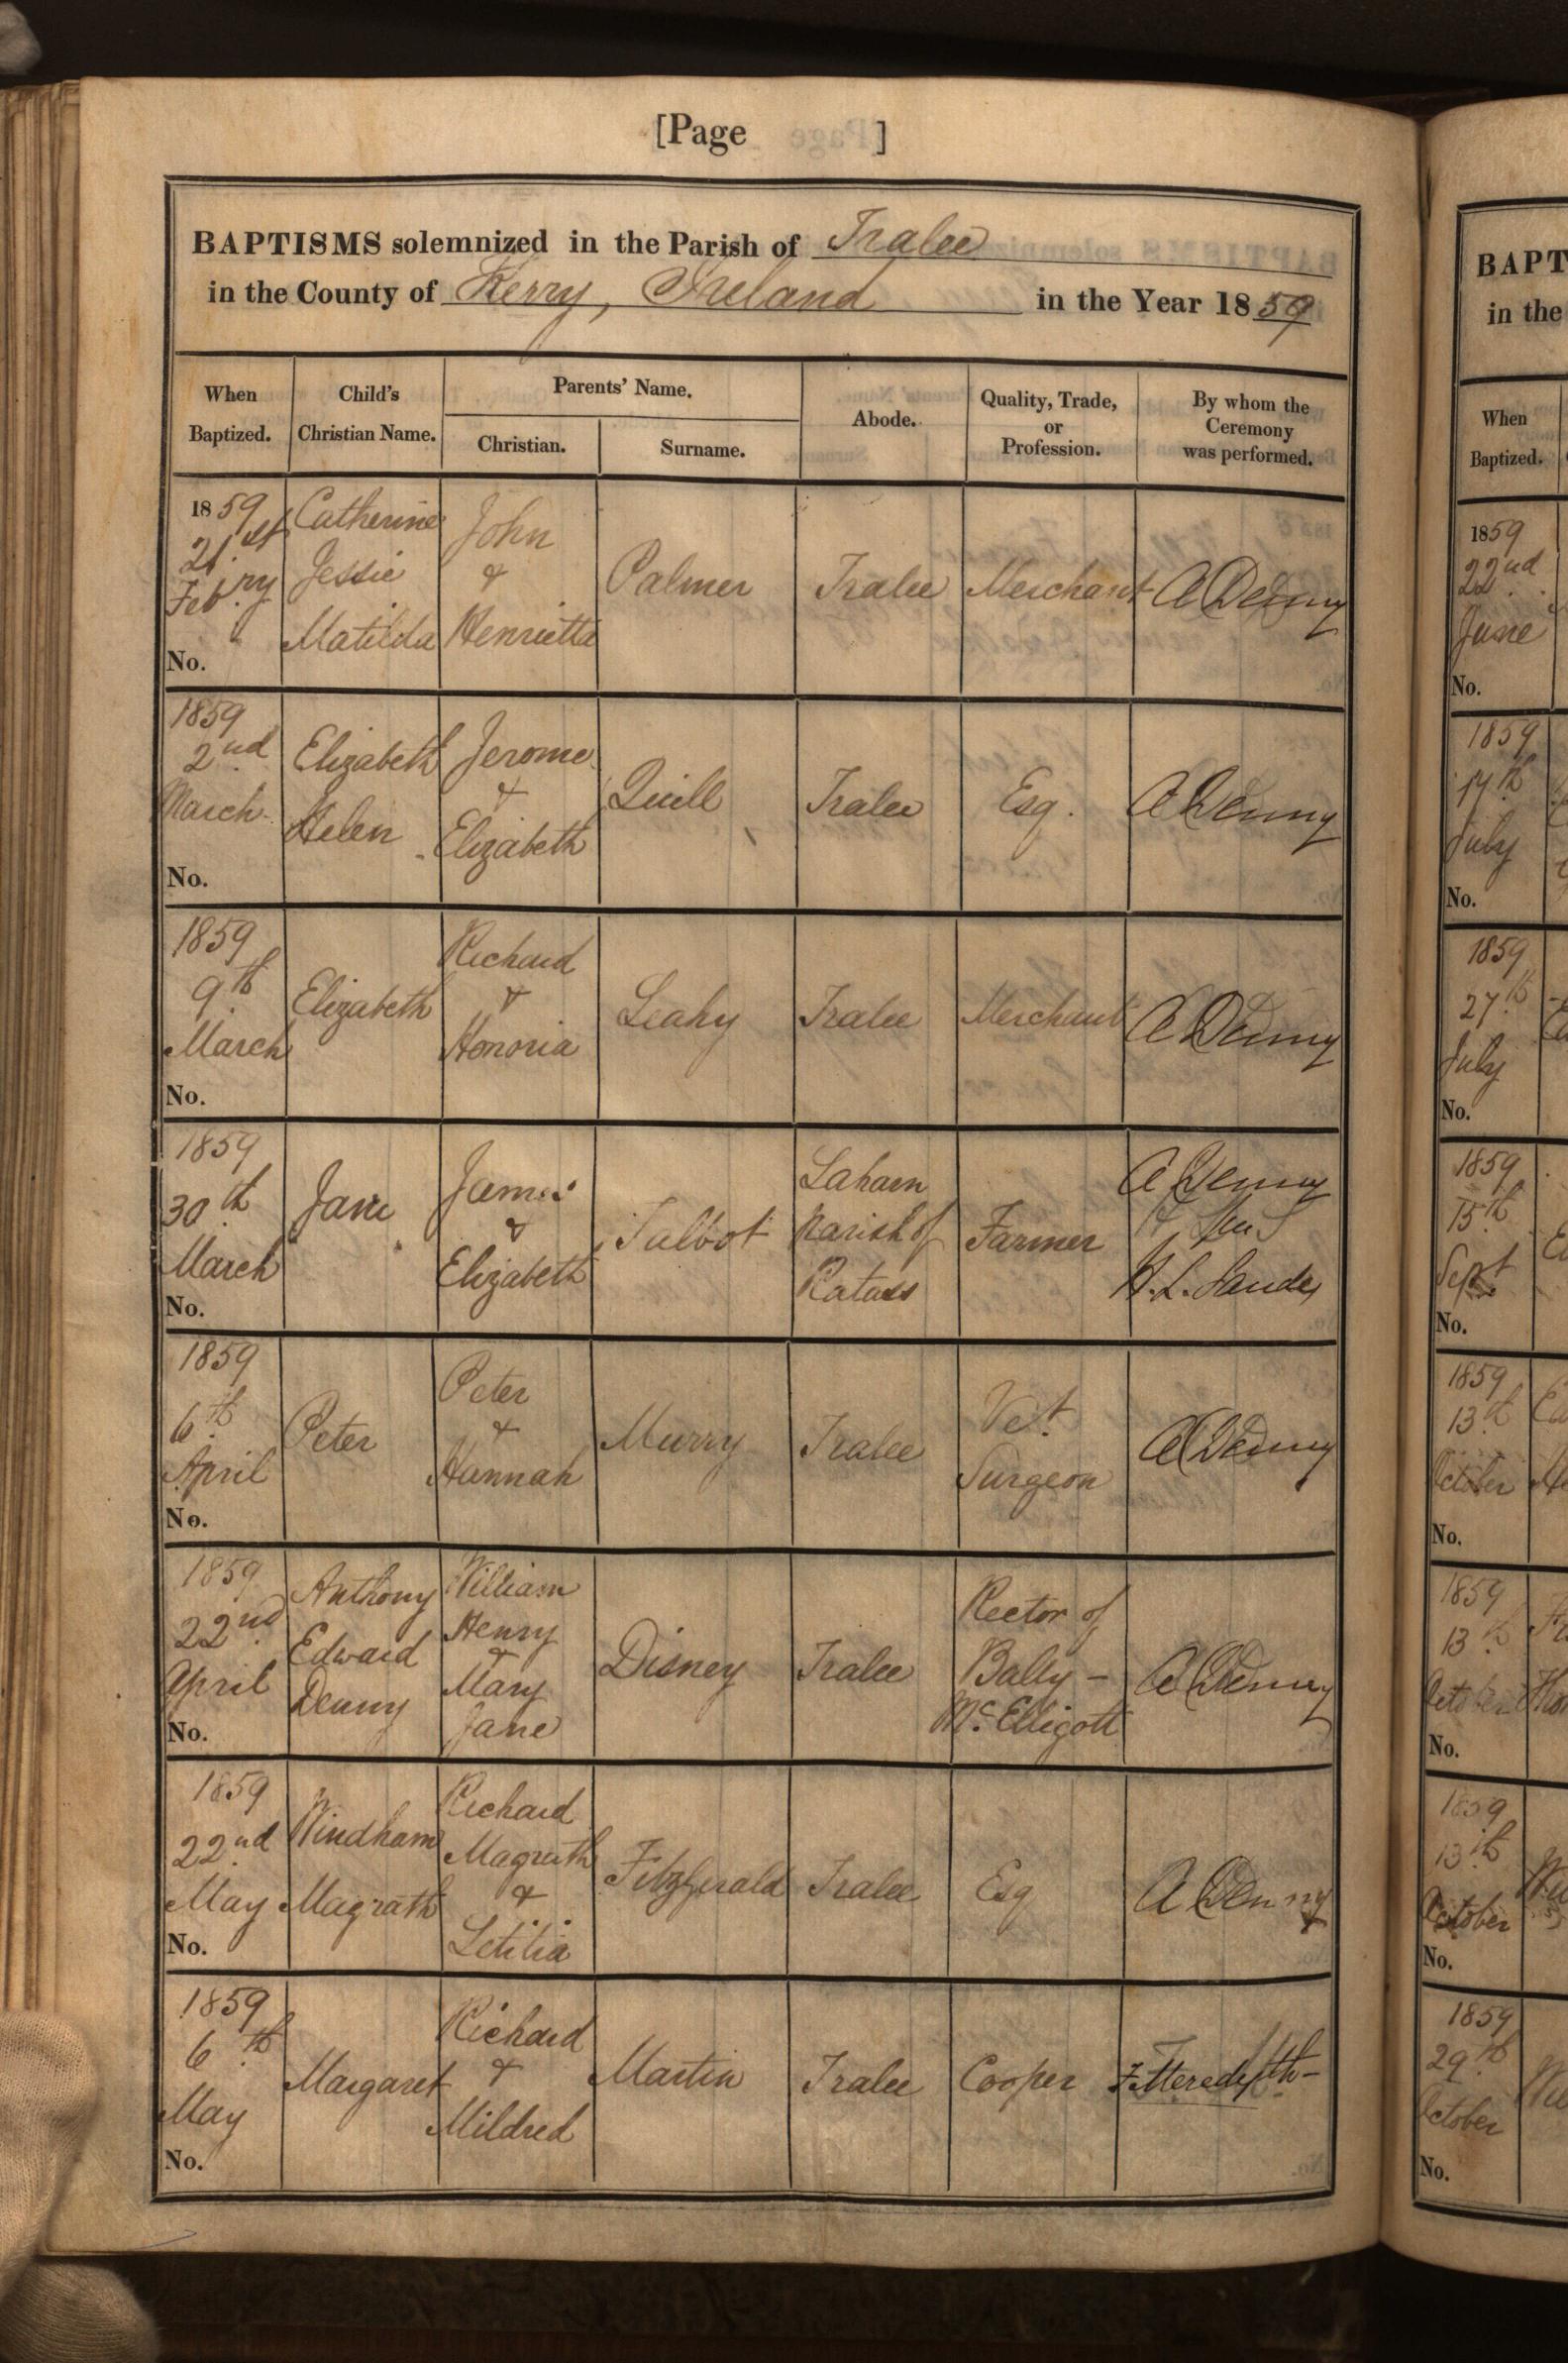 [Page ]
BAPTISMS solemnized in the Parish of Tralee
in the County of Kerry, Ireland in the Year 1859
When Baptized. Child's Christian Name. Parents' Name. Christian. Surname. Abode. Quality, Trade, or Profession. By whom the Ceremony was performed.
1859 21st Feb.ry Catherine Jessie Matilda John & Henrietta Palmer Tralee Merchant A Denny
No.
1859 2nd March Elizabeth Helen Jerome & Elizabeth Quill Tralee Esq. A Denny
No.
1859 9th March Elizabeth Richard & Honoria Leahy Tralee Merchant A Denny
No.
1859 30th March Jane James & Elizabeth Talbot Laharn Parish of Ratass Farmer A Denny H.L. Sandes
No.
1859 6th April Peter Peter & Hannah Murry Tralee Vet. Surgeon A Denny
No.
1859 22nd April Anthony Edward Denny William Henry & Mary Jane Disney Tralee Rector of Bally-McElligott A Denny
No.
1859 22nd May Windham Magrath Richard Magrath & Letitia Fitzgerald Tralee Esq A Denny
No.
1859 6th May Margaret Richard & Mildred Martin Tralee Cooper F Meredyth
No.
BAPT
in the
When Baptized.
1859 22nd June
No.
1859 17th July
No.
1859 27th July
No.
1859 15th Sept
No.
1859 13th October
No.
1859 13th October
No.
1859 13th October
No.
1859 29th October
No.